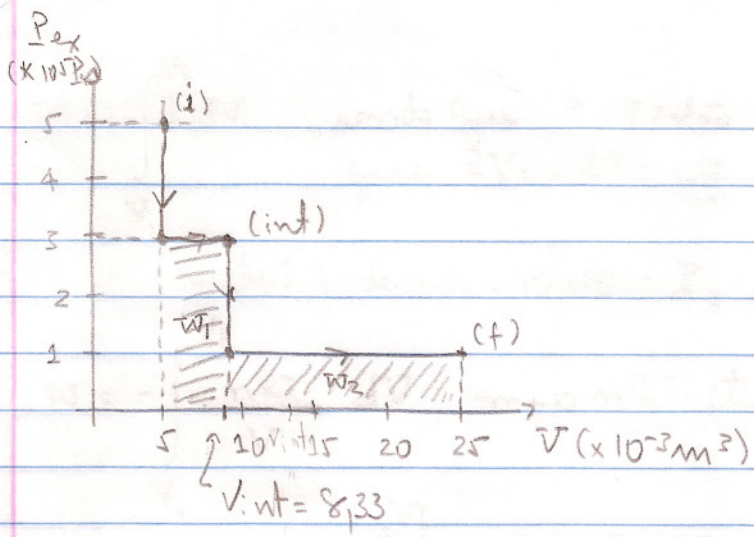 Pex
(×10⁵Pa)
(i)
5
4
3
(int)
2
W₁
1
(f)
W₂
5
10
Vint
15
20
25
V (×10⁻³m³)
Vint = 8,33